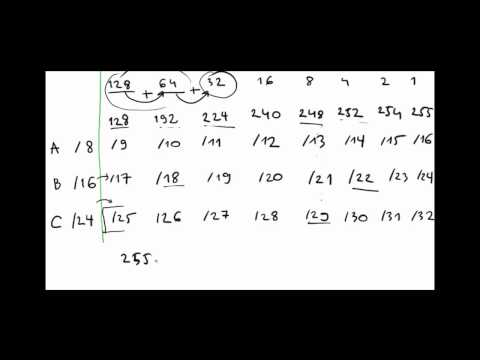 128 + 64 + 32 16 8 4 2 1
128 192 224 240 248 252 254 255
A /8 /9 /10 /11 /12 /13 /14 /15 /16
B /16 /17 /18 /19 /20 /21 /22 /23 /24
C /24 /25 /26 /27 /28 /29 /30 /31 /32
255.